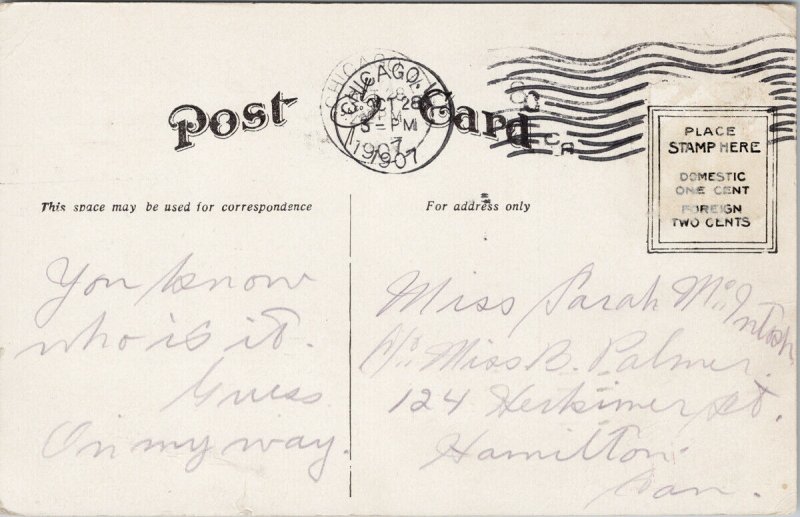 Post Card
CHICAGO, ILL.
OCT 28
3-PM
1907
PLACE
STAMP HERE
DOMESTIC
ONE CENT
FOREIGN
TWO CENTS
This space may be used for correspondence
For address only
You know
who is it.
Guess
On my way.
Miss Sarah McIntosh
C/o Miss B. Palmer.
124 Herkimer St.
Hamilton.
Can.